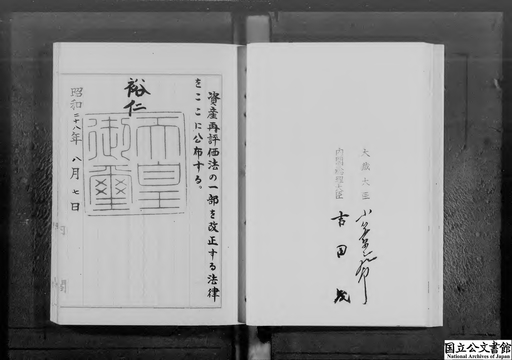 資産再評価法の一部を改正する法律
をここに公布する。
裕仁
天皇
御璽
昭和二十八年八月七日
内閣総理大臣
吉田茂
大蔵大臣
国立公文書館
National Archives of Japan